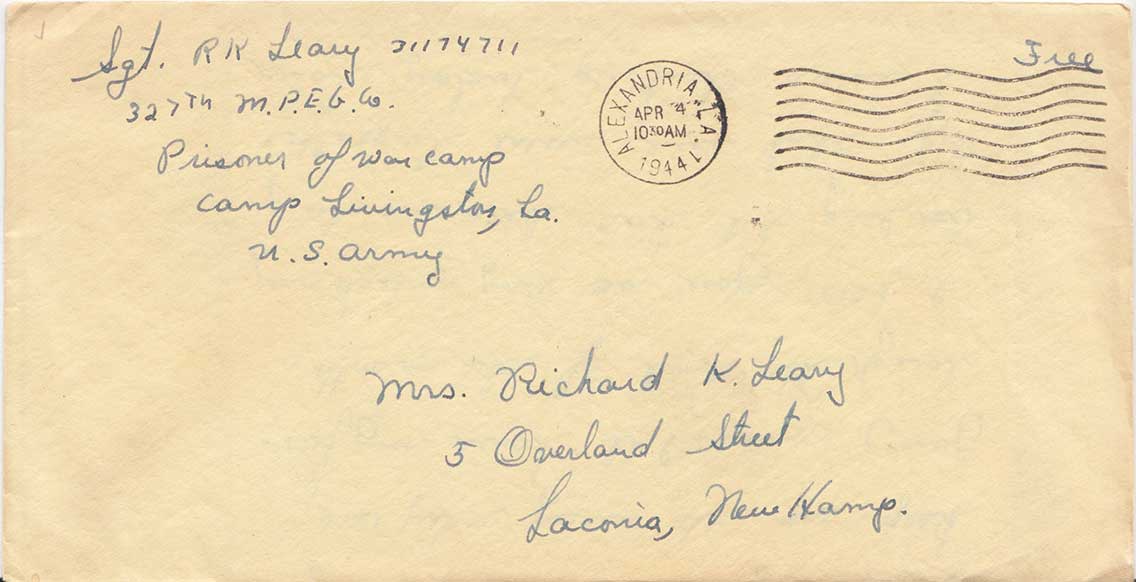 Sgt. R K Leary 31174711
327TH M.P.E.G. Co.
Prisoner of war camp
Camp Livingston, La.
U.S. Army
Free
ALEXANDRIA, LA.
APR 4
10 30 AM
1944
Mrs. Richard K. Leary
5 Overland Street
Laconia, New Hamp.